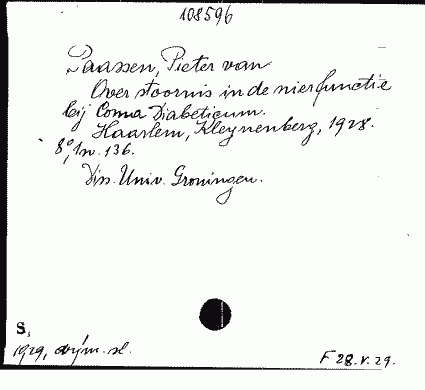 108596
Paassen, Pieter van
Over stoornis in de nierfunctie
bij Coma Diabeticum.
Haarlem, Kleynenberg, 1928.
8°, 136.
Diss. Univ. Groningen.
S.
1929,
F 28.V.29.